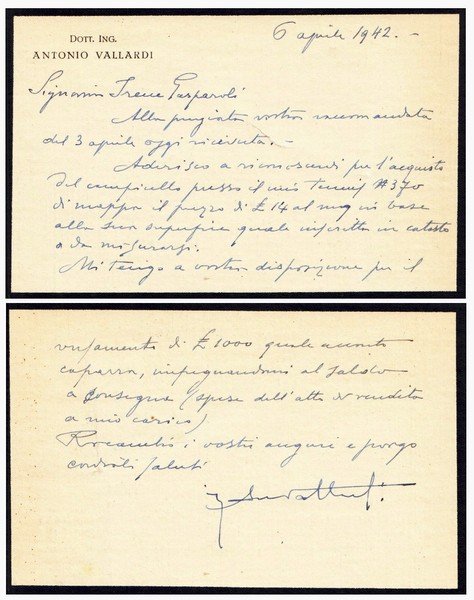 DOTT. ING.
ANTONIO VALLARDI
6 aprile 1942. -
Signorina Irene Gasparoli
Alla pregiata vostra raccomandata
del 3 aprile oggi ricevuta. -
Aderisco a riconoscervi per l'acquisto
del campicello presso il mio tennis N 370
di mappa il prezzo di £ 14 al mq in base
alla sua superficie quale inscritta in catasto
o da misurarsi.
Mi tengo a vostra disposizione per il
versamento di £ 1000 quale acconto
caparra, impegnandomi al saldo
a consegna (spese dell'atto di vendita
a mio carico)
Ricambio i vostri auguri e porgo
cordiali saluti